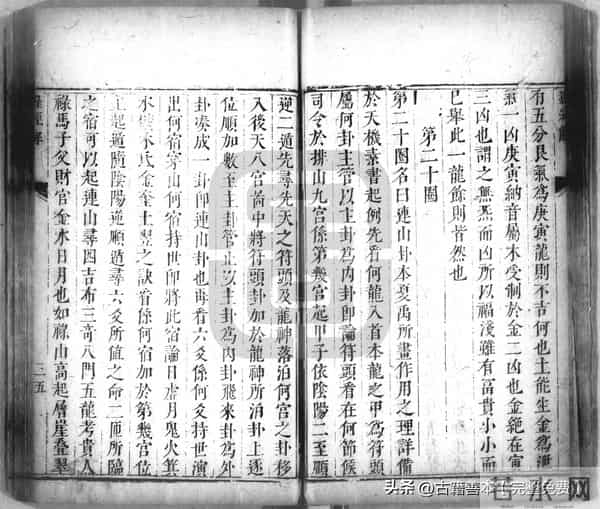 有五分艮氣為庚寅龍則不吉何也土能生金為洩
氣一凶庚寅納音屬木受制於金二凶也金絶在寅
三凶也謂之無炁而凶所以福淺雖有富貴小小而
已舉此一龍餘則皆然也
第二十圖
第二十圖名曰連山卦本夏禹所畫作用之理詳備
於天機素書起例先看何龍入首本龍之甲為符頭
屬何卦主管以主卦為內卦即論符頭看在何節候
司令於排山九宮係第幾宮起甲子依陰陽二至順
逆二遁先尋先天之符頭及龍神落泊何宮之卦移
入後天八宮齒中將符頭卦加於龍神所泊卦上逐
位順加數至主卦管止以主卦為內卦飛來卦為外
卦湊成一卦即連山卦也再看六爻係何爻持世演
出何宿穿山何宿持世即將此宿論日虛月鬼火箕
水氐金奎土翌之訣看係何宿加於第幾宮位
起遁隨陰陽逆順遁尋六爻所值之命二匝所臨
之宿可以起連山尋四吉布三奇八門五龍考貴人
祿馬子父財官金水日月也如祿山高起層崖疊翠
三五
头条 @古籍善本十完整免费